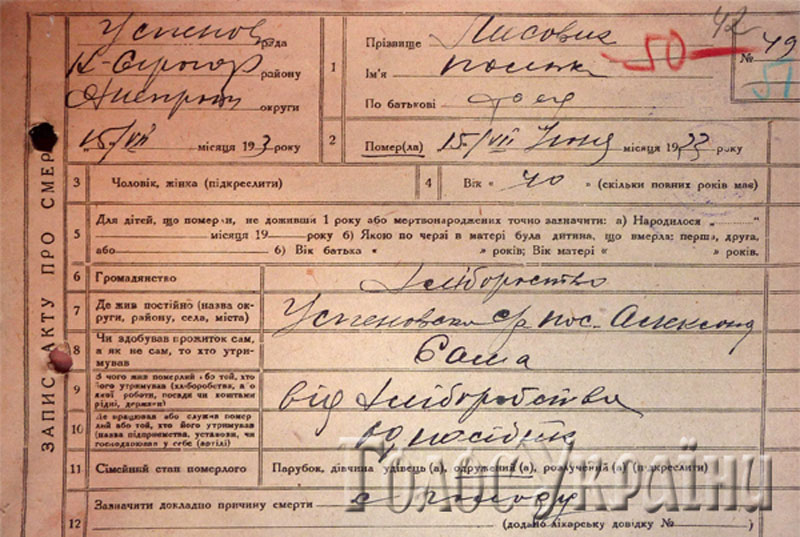 Успенов рада
району
округи
15/VII місяця 193 3 року
1
Прізвище Лисовик
50 42
№ 49
51
Ім'я
По батькові
2
Помер(ла) 15/VII місяця 1933 року
3
Чоловік, жінка (підкреслити)
4
Вік « 40 » (скільки повних років має)
5
Для дітей, що померли, не доживши 1 року або мертвонароджених точно зазначити: а) Народилося „ "
місяця 19 року б) Якою по черзі в матері була дитина, що вмерла: перша, друга,
або б) Вік батька « » років; Вік матері « » років.
6
Громадянство хліборобство
7
Де жив постійно (назва ок-
руги, району, села, міста)
Успеновка с/р пос.
8
Чи здобував прожиток сам,
а як не сам, то хто утри-
мував
Сама
9
З чого жив померлий або той, хто
його утримував (хліборобства, або
якої роботи, посади чи коштами
рідні, держави)
від хліборобства
10
Де працював або служив помер
лий або той, хто його утримував
(назва підприємства, установи, чи
господарював у себе (артілі)
11
Сімейний стан померлого
Парубок, дівчина удівець (а), одружений (а), розлучений (а) (підкреслити)
12
Зазначити докладно причину смерті з голоду
(додано лікарську довідку № )
ЗАПИС АКТУ ПРО СМЕР
Голос України